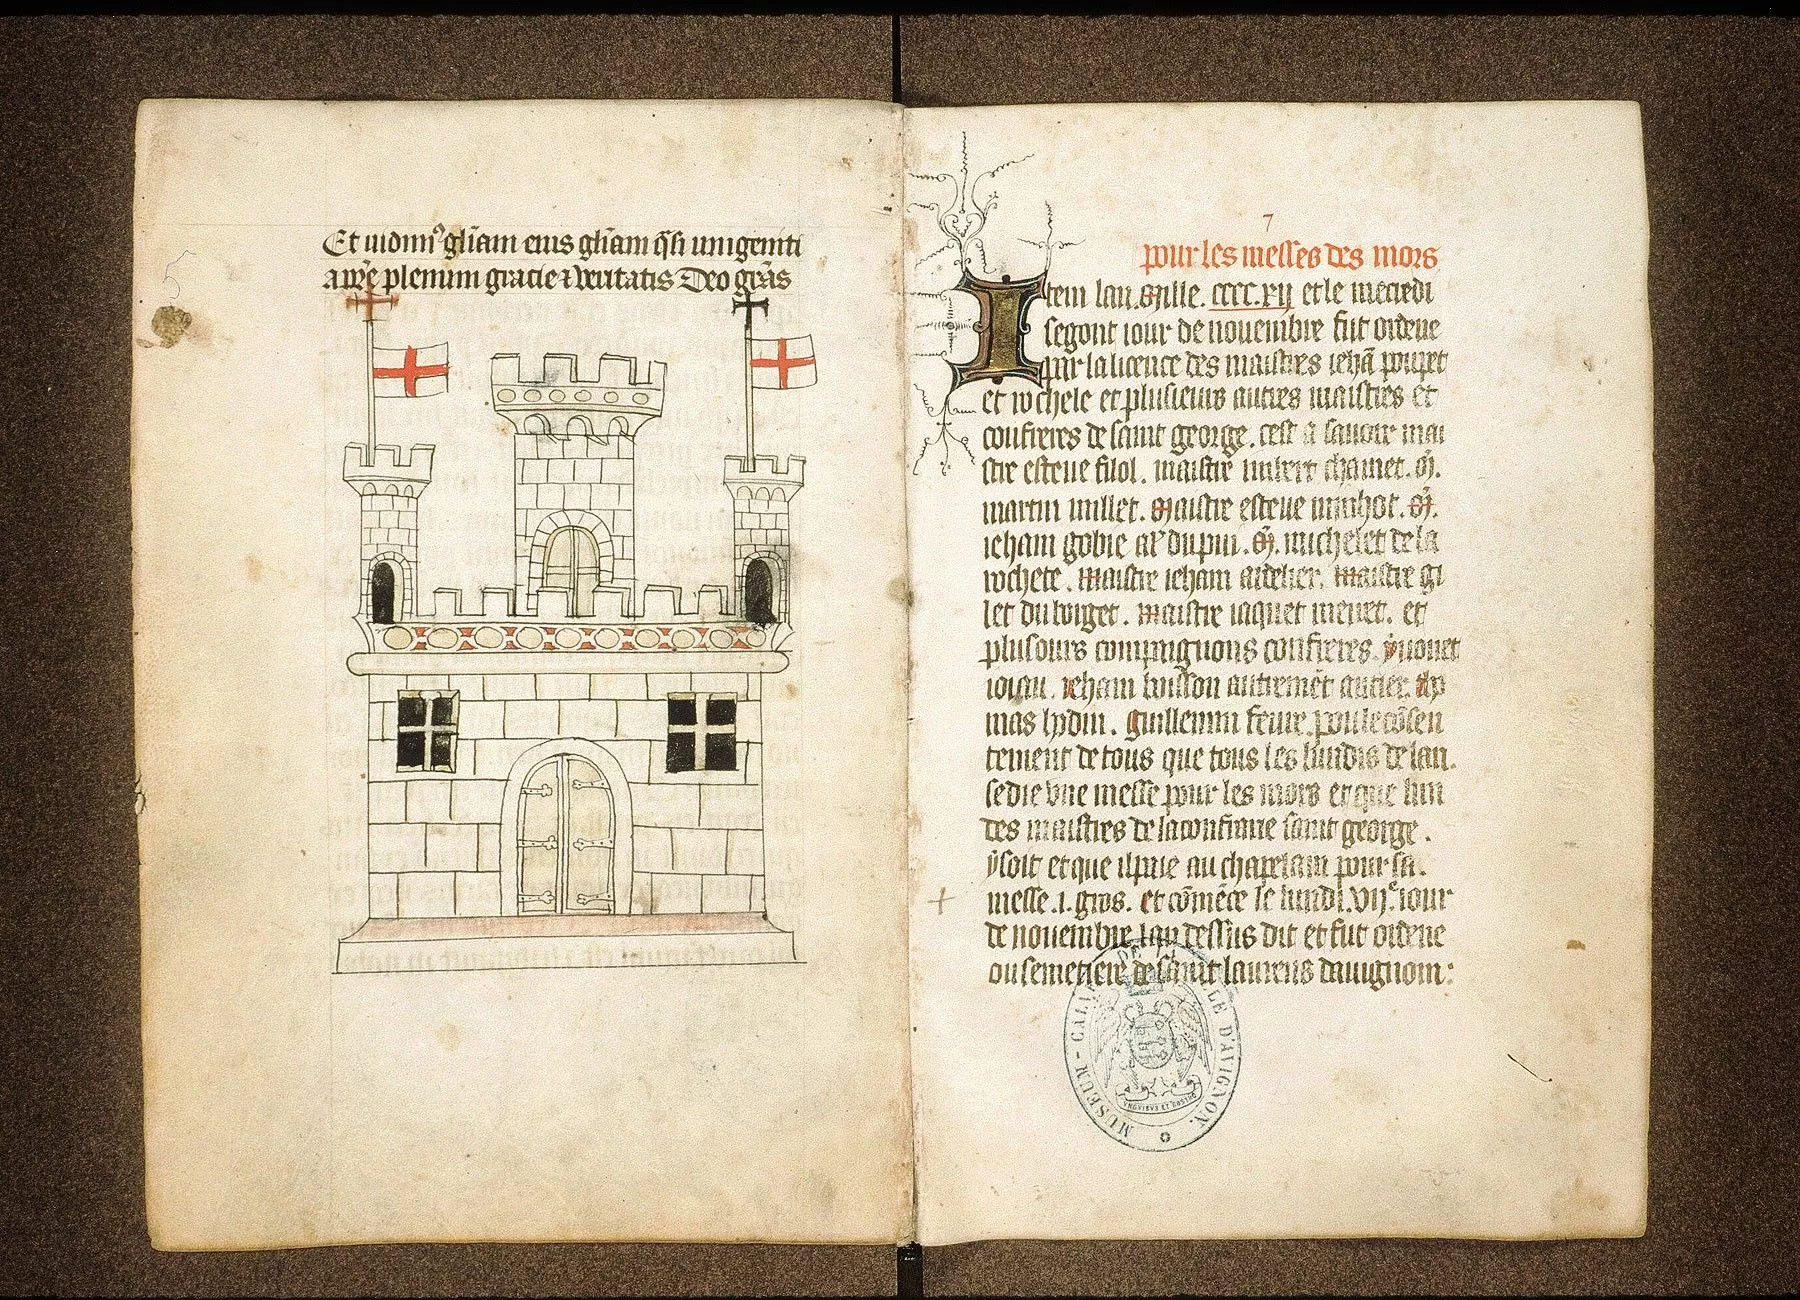 Et uidim9 gl̃iam eius gl̃iam q̃si unigeniti
a pr̃e plenum gracie ⁊ veritatis Deo gr̃as
5
7
pour les messes des mors
Item lan mille. cccc.xij et le mecredi
segont iour de nouembre fut ordene
par la licence des maistres iehã poupet
et rochele et plusieurs autres maistres et
confreres de saint george. cest a sauoir mai
stre esteue filol. maistre imbert chamet. m̃.
martin millet. maistre esteue minhot. m̃.
ieham gobie dupui. m̃. michelet de la
rochete. maistre ieham artelier. maistre gi
let du borget. maistre iaquet menet. et
plusours compaignons confreres. yuonet
ieham buisson autremẽt
mas lydin. guillemin feure. pour le cõsen
tement de tous que tous les lundis de lan.
se die vne messe pour les mors et que lun
des maistres de la confrarie saint george.
y soit et que il paie au chapelain pour sa.
messe .i. gros. et cõmẽce le lundi .vij.e iour
de nouembre lan dessus dit et fut ordene
ou semetiere de saint laurens dauignom:
MUSEUM-CALVET DE LA VILLE D'AVIGNON.